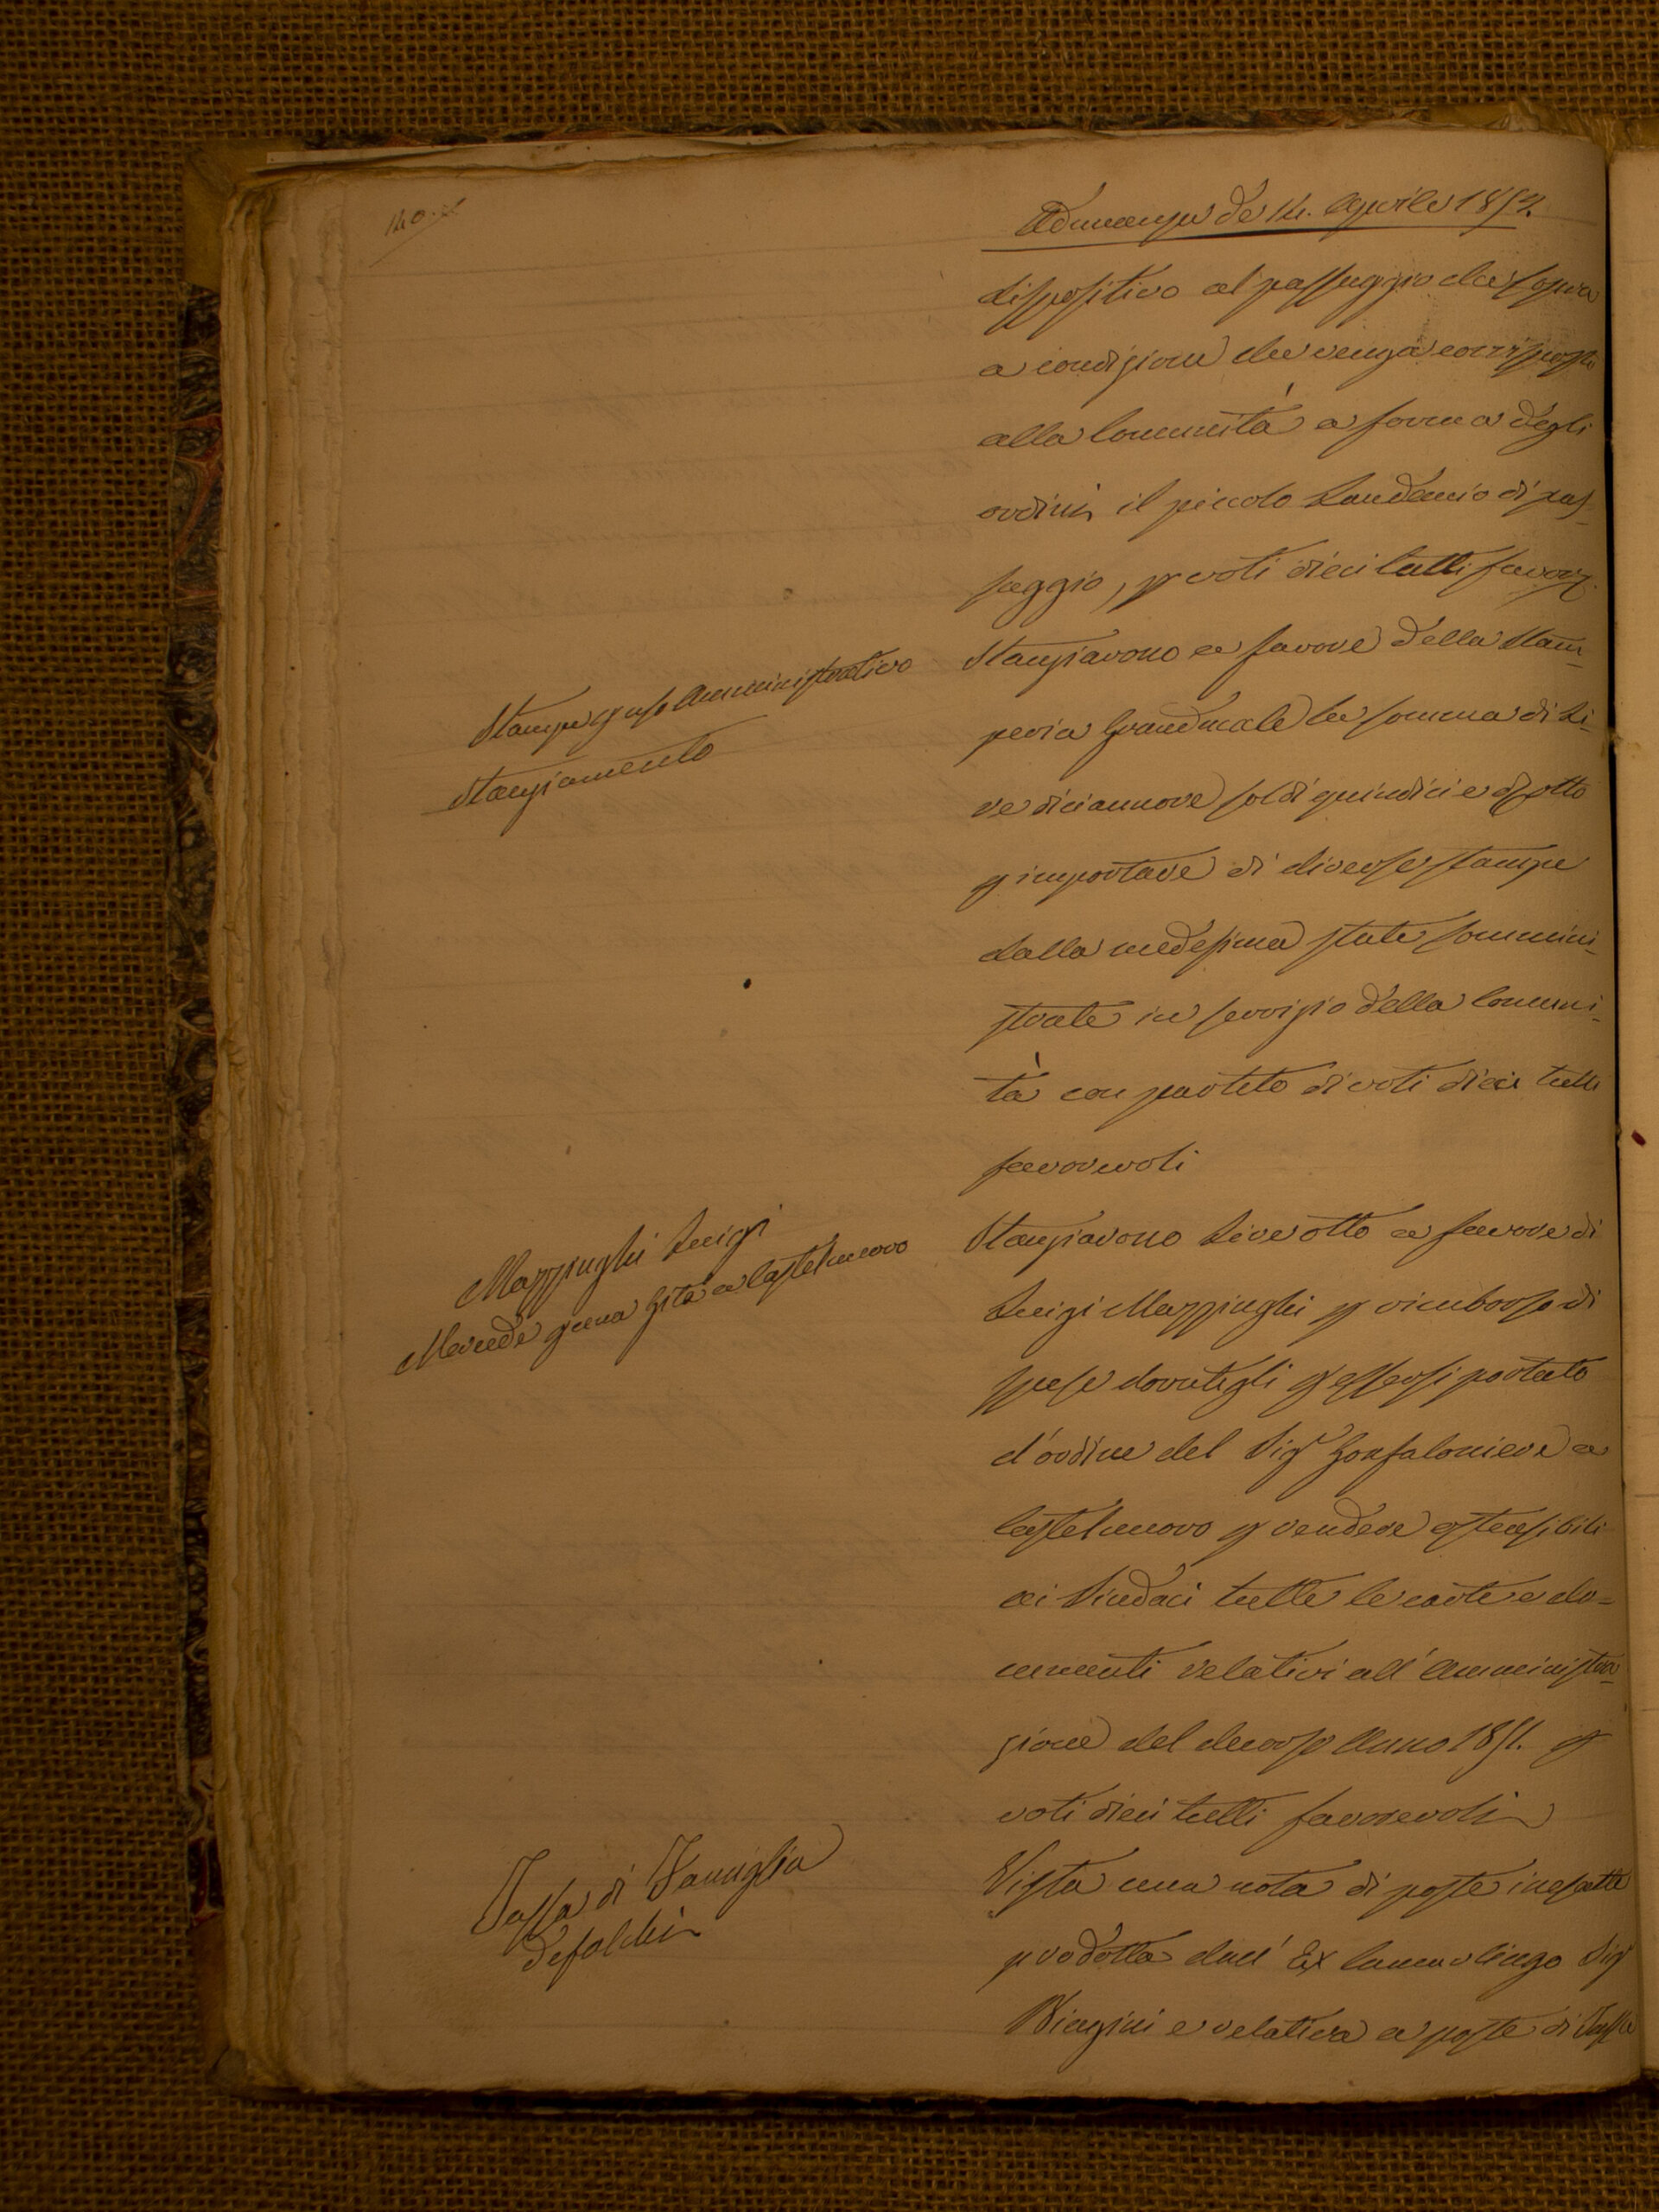 Adunanza de 14. Aprile 1852.
dispositivo al passaggio che sopra
a condizione che venga corrisposto
alla Comunità a forma degli
ordini il piccolo Laudemio di pas-
saggio, p voti dieci tutti favor
Stampe p uso Amministrativo
Stanziamento
Stanziarono a favore della Stam-
peria Granducale la somma di Li-
re diciannove soldi quindici e d otto
p importare di diverse stampe
dalla medesima state sommini-
strate in servizio della Comuni-
tà con partito di voti dieci tutti
favorevoli
Mazzinghi Luigi
Mercede p una Gita a Castelnuovo
Stanziarono Lire otto a favore di
Luigi Mazzinghi p rimborso di
spese dovutegli p essersi portato
d'ordine del Sigr Gonfaloniere a
Castelnuovo p rendere ostensibili
ai Sindaci tutte le carte e do=
cumenti relativi all'Amministra-
zione del decorso Anno 1851. p
voti dieci tutti favorevoli
Tassa di Famiglia
Defalchi
Vista una nota di poste inesatte
prodotta dall'Ex Camarlingo Sigr
Biagini e relativa a poste di Tassa